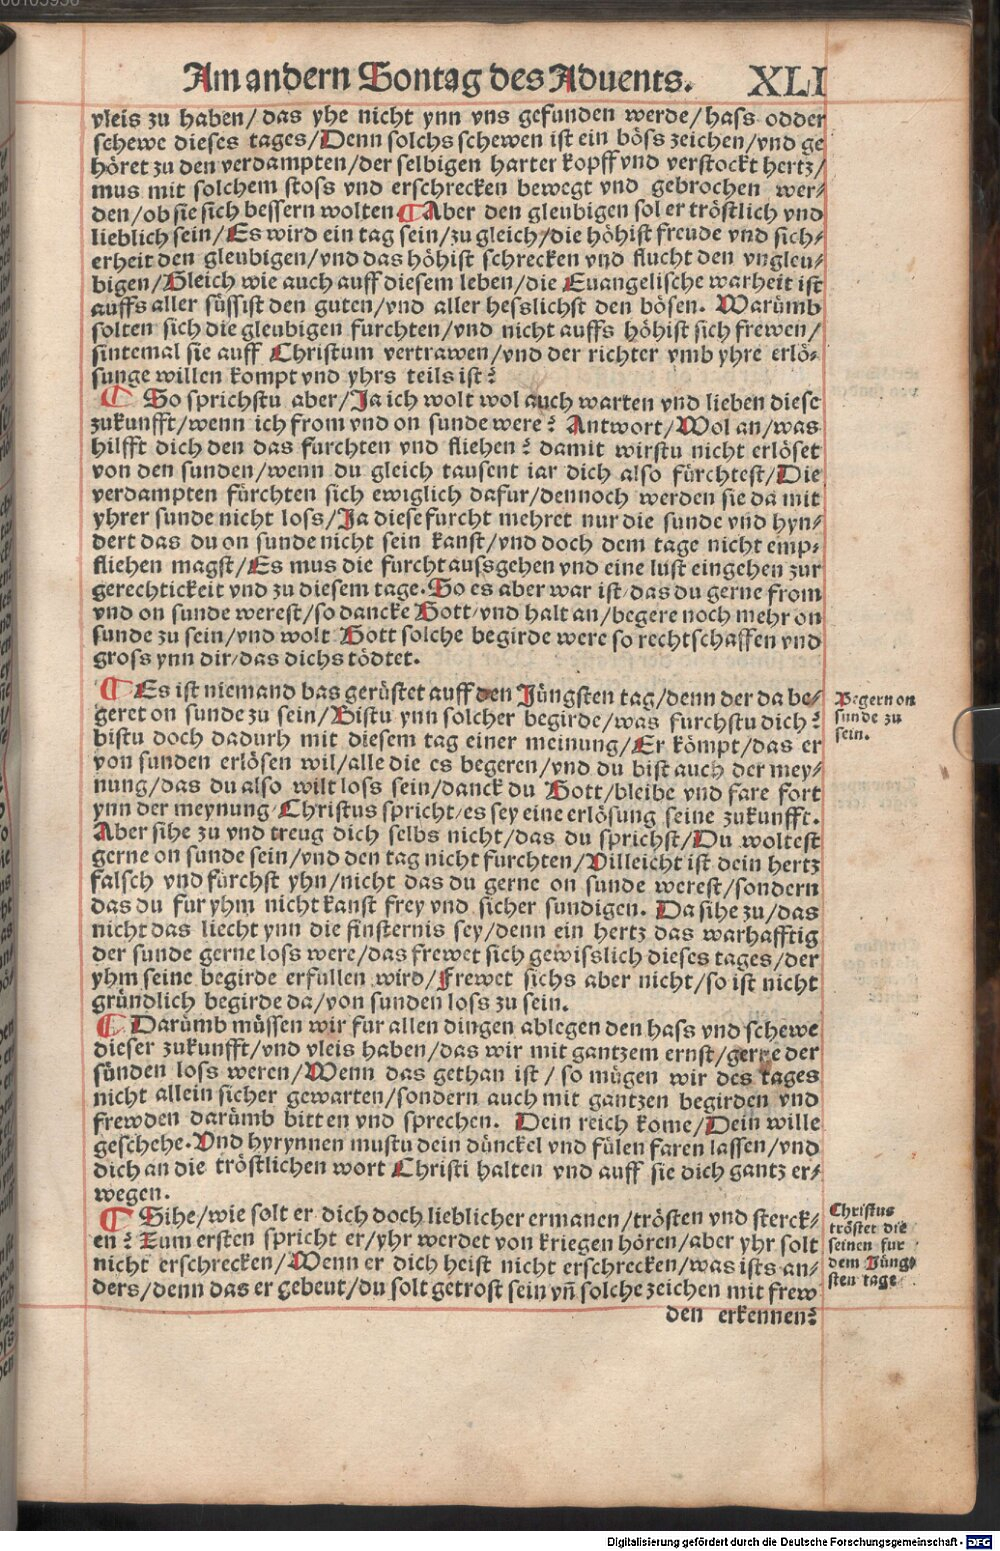 Am andern Sontag des Aduents. XLI
vleis zu haben/das yhe nicht ynn vns gefunden werde/hass odder
schewe dieses tages/Denn solchs schewen ist ein böss zeichen/vnd ge
höret zu den verdampten/der selbigen harter kopff vnd verstockt hertz/
mus mit solchem stoss vnd erschrecken bewegt vnd gebrochen wer⸗
den/ob sie sich bessern wolten ¶ Aber den gleubigen sol er tröstlich vnd
lieblich sein/Es wird ein tag sein/zu gleich/die höhist freude vnd sich⸗
erheit den gleubigen/vnd das höhist schrecken vnd flucht den vngleu⸗
bigen/Gleich wie auch auff diesem leben/die Euangelische warheit ist
auffs aller süssist den guten/vnd aller hesslichst den bösen. Warümb
solten sich die gleubigen furchten/vnd nicht auffs höhist sich frewen/
sintemal sie auff Christum vertrawen/vnd der richter vmb yhre erlö⸗
sunge willen kompt vnd yhrs teils ist?
¶ So sprichstu aber/Ja ich wolt wol auch warten vnd lieben diese
zukunfft/wenn ich from vnd on sunde were? Antwort/Wol an/was
hilfft dich den das furchten vnd fliehen? damit wirstu nicht erlöset
von den sunden/wenn du gleich tausent iar dich also fürchtest/Die
verdampten fürchten sich ewiglich dafur/dennoch werden sie da mit
yhrer sunde nicht loss/Ja diese furcht mehret nur die sunde vnd hyn⸗
dert das du on sunde nicht sein kanst/vnd doch dem tage nicht emp⸗
fliehen magst/Es mus die furcht aussgehen vnd eine lust eingehen zur
gerechtickeit vnd zu diesem tage. So es aber war ist/das du gerne from
vnd on sunde werest/so dancke Gott/vnd halt an/begere noch mehr on
sunde zu sein/vnd wolt Gott solche begirde were so rechtschaffen vnd
gross ynn dir/das dichs tödtet.
¶ Es ist niemand bas gerüstet auff den Jüngsten tag/denn der da be⸗
geret on sunde zu sein/Bistu ynn solcher begirde/was furchstu dich?
bistu doch dadurh mit diesem tag einer meinung/Er kömpt/das er
von sunden erlösen wil/alle die es begeren/vnd du bist auch der mey⸗
nung/das du also wilt loss sein/danck du Gott/bleibe vnd fare fort
ynn der meynung/Christus spricht/es sey eine erlösung seine zukunfft.
Aber sihe zu vnd treug dich selbs nicht/das du sprichst/Du woltest
gerne on sunde sein/vnd den tag nicht furchten/Villeicht ist dein hertz
falsch vnd fürchst yhn/nicht das du gerne on sunde werest/sondern
das du fur yhm nicht kanst frey vnd sicher sundigen. Da sihe zu/das
nicht das liecht ynn die finsternis sey/denn ein hertz das warhafftig
der sunde gerne loss were/das frewet sich gewisslich dieses tages/der
yhm seine begirde erfullen wird/Frewet sichs aber nicht/so ist nicht
gründlich begirde da/von sunden loss zu sein.
¶ Darümb müssen wir fur allen dingen ablegen den hass vnd schewe
dieser zukunfft/vnd vleis haben/das wir mit gantzem ernst/gerne der
sünden loss weren/Wenn das gethan ist/so mügen wir des tages
nicht allein sicher gewarten/sondern auch mit gantzen begirden vnd
frewden darümb bitten vnd sprechen. Dein reich kome/Dein wille
geschehe. Vnd hyrynnen mustu dein dünckel vnd fülen faren lassen/vnd
dich an die tröstlichen wort Christi halten vnd auff sie dich gantz er⸗
wegen.
¶ Sihe/wie solt er dich doch lieblicher ermanen/trösten vnd sterck⸗
en? Zum ersten spricht er/yhr werdet von kriegen hören/aber yhr solt
nicht erschrecken/Wenn er dich heist nicht erschrecken/was ists an⸗
ders/denn das er gebeut/du solt getrost sein yñ solche zeichen mit frew
den erkennen?
Begern on
sunde zu
sein.
Christus
tröstet die
seinen fur
dem Jüng⸗
sten tage
Digitalisierung gefördert durch die Deutsche Forschungsgemeinschaft - DFG